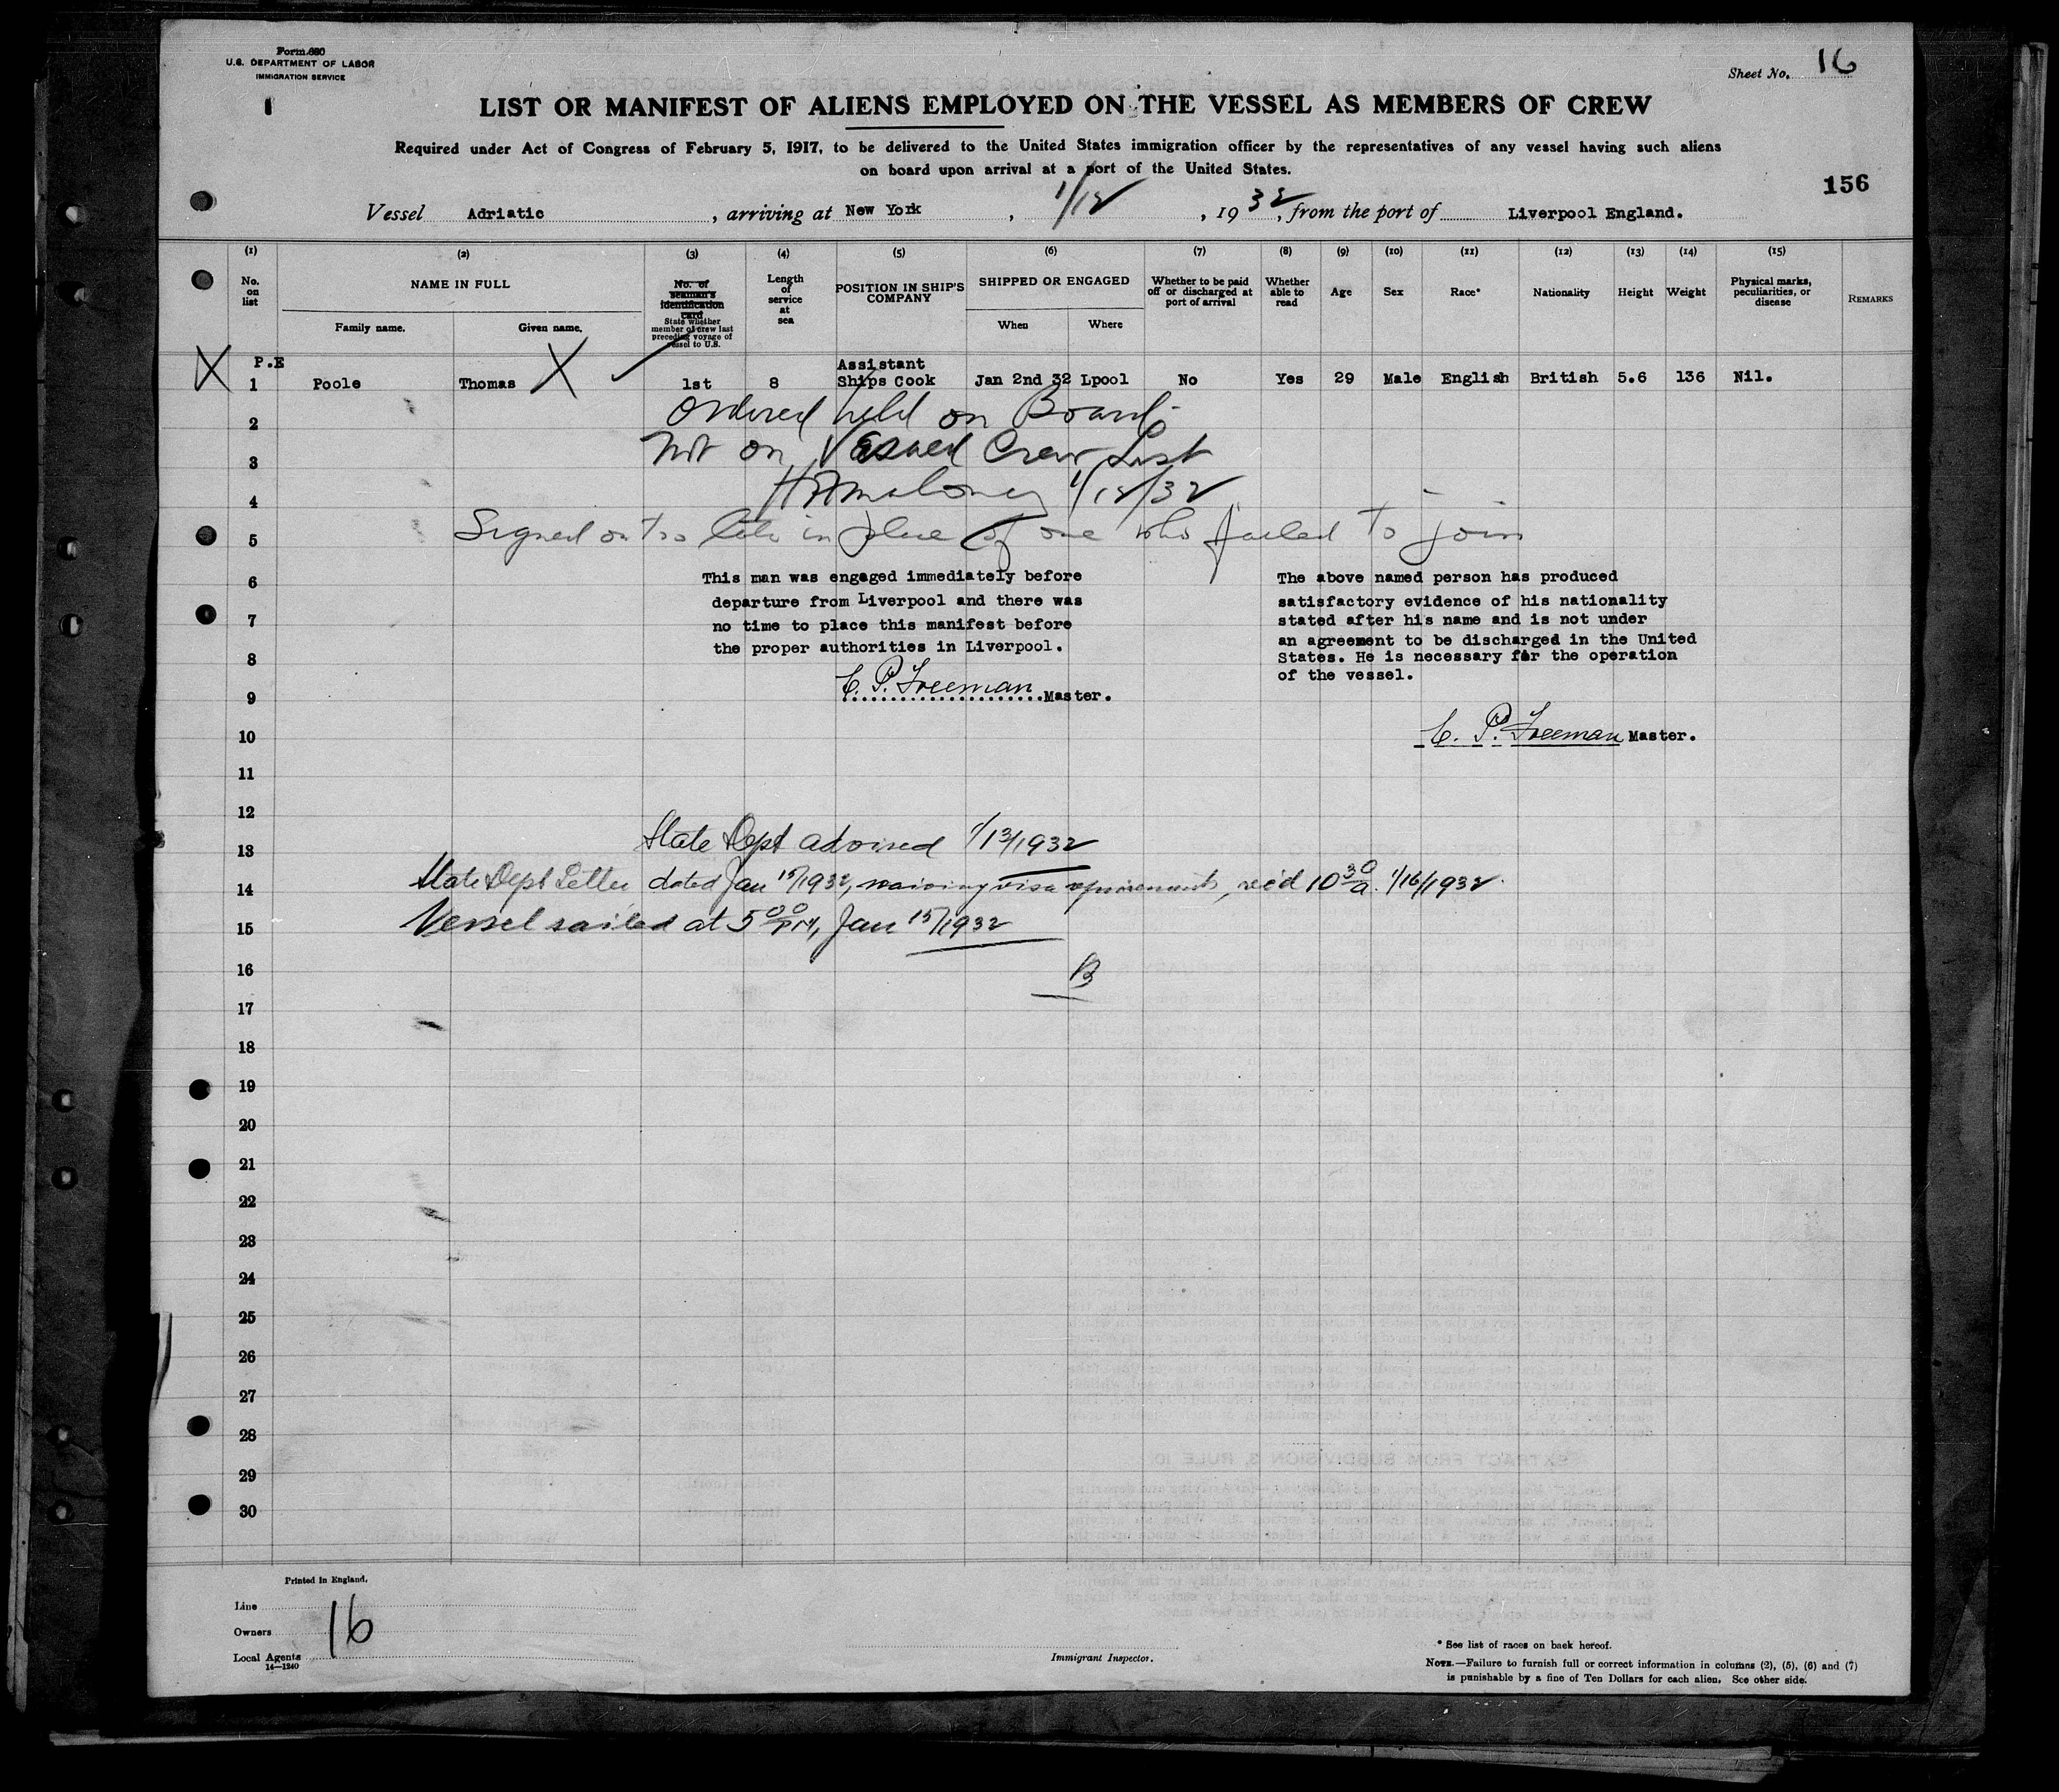 Form 680
U.S. DEPARTMENT OF LABOR
IMMIGRATION SERVICE
Sheet No. 16
LIST OR MANIFEST OF ALIENS EMPLOYED ON THE VESSEL AS MEMBERS OF CREW
Required under Act of Congress of February 5, 1917, to be delivered to the United States immigration officer by the representatives of any vessel having such aliens
on board upon arrival at a port of the United States.
156
Vessel Adriatic, arriving at New York, 1/12, 1932, from the port of Liverpool England.
(1) (2) (3) (4) (5) (6) (7) (8) (9) (10) (11) (12) (13) (14) (15)
No. on list
NAME IN FULL
Family name. Given name.
No. of seaman's identification card
State whether member of crew last preceding voyage of vessel to U.S.
Length of service at sea
POSITION IN SHIP'S COMPANY
SHIPPED OR ENGAGED
When Where
Whether to be paid off or discharged at port of arrival
Whether able to read
Age
Sex
Race*
Nationality
Height
Weight
Physical marks, peculiarities, or disease
REMARKS
X P.E Assistant
1 Poole Thomas X 1st 8 Ships Cook Jan 2nd 32 Lpool No Yes 29 Male English British 5.6 136 Nil.
2 Ordered held on Board-
3 Not on Visaed Crew List
4 Maloney 1/12/32
5 Signed on too late in place of one who failed to join
6
7
8
9
10
11
12
This man was engaged immediately before
departure from Liverpool and there was
no time to place this manifest before
the proper authorities in Liverpool.
C. P. Freeman Master.
The above named person has produced
satisfactory evidence of his nationality
stated after his name and is not under
an agreement to be discharged in the United
States. He is necessary for the operation
of the vessel.
C. P. Freeman Master.
13 State Dept advised 1/13/1932
14 State Dept Letter dated Jan 15/1932, waiving visa requirements, rec'd 10 30 a. 1/16/1932.
15 Vessel sailed at 5 00 PM, Jan 15/1932
16 B
17
18
19
20
21
22
23
24
25
26
27
28
29
30
Printed in England.
Line
Owners 16
Local Agents
14—1240
Immigrant Inspector.
* See list of races on back hereof.
NOTE.—Failure to furnish full or correct information in columns (2), (5), (6) and (7)
is punishable by a fine of Ten Dollars for each alien. See other side.